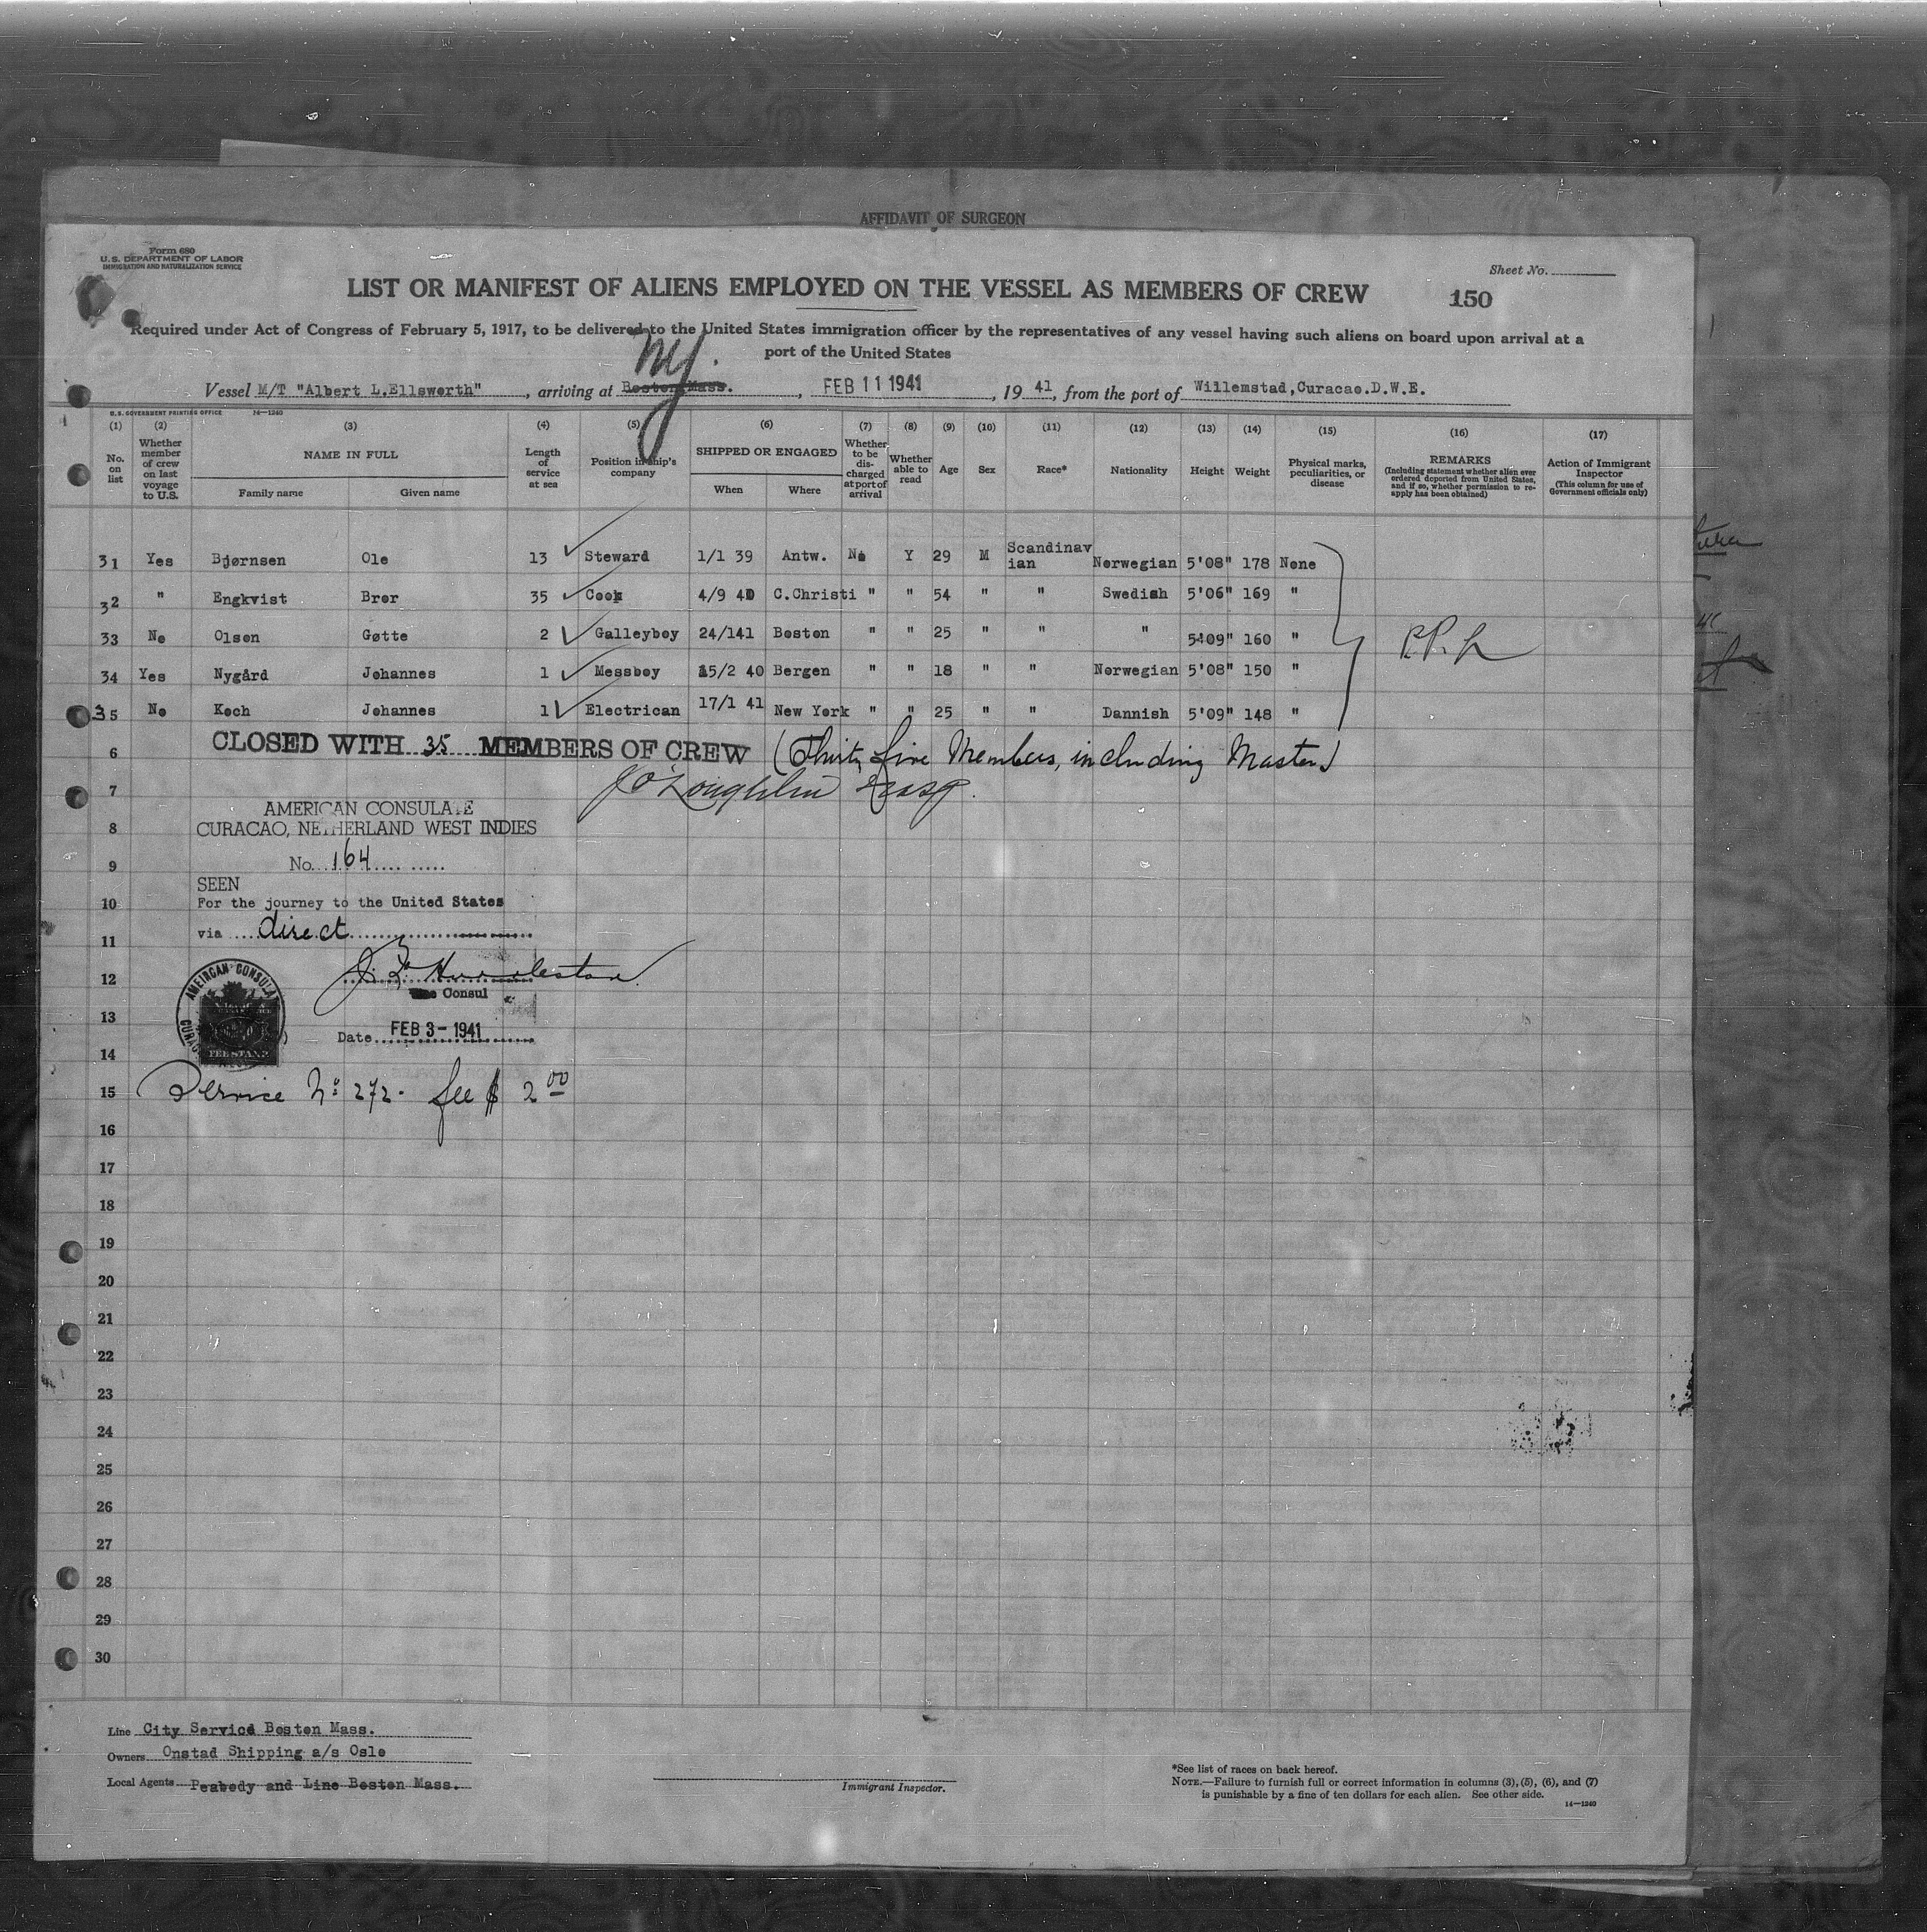 AFFIDAVIT OF SURGEON
Form 680
U.S. DEPARTMENT OF LABOR
IMMIGRATION AND NATURALIZATION SERVICE
Sheet No.
LIST OR MANIFEST OF ALIENS EMPLOYED ON THE VESSEL AS MEMBERS OF CREW
150
Required under Act of Congress of February 5, 1917, to be delivered to the United States immigration officer by the representatives of any vessel having such aliens on board upon arrival at a
port of the United States
NY.
Vessel M/T "Albert L.Ellsworth", arriving at Boston Mass., FEB 11 1941, 1941, from the port of Willemstad,Curacao.D.W.E.
U.S. GOVERNMENT PRINTING OFFICE 14—1240
(1) (2) (3) (4) (5) (6) (7) (8) (9) (10) (11) (12) (13) (14) (15) (16) (17)
No. on list
Whether member of crew on last voyage to U.S.
NAME IN FULL
Family name Given name
Length of service at sea
Position in ship's company
SHIPPED OR ENGAGED
When Where
Whether to be discharged at port of arrival
Whether able to read
Age
Sex
Race*
Nationality
Height
Weight
Physical marks, peculiarities, or disease
REMARKS
(Including statement whether alien ever ordered deported from United States, and if so, whether permission to re-apply has been obtained)
Action of Immigrant Inspector
(This column for use of Government officials only)
31 Yes Bjørnsen Ole 13 Steward 1/1 39 Antw. No Y 29 M Scandinavian Norwegian 5'08" 178 None
32 " Engkvist Bror 35 Cook 4/9 40 C.Christi " " 54 " " Swedish 5'06" 169 "
33 No Olsen Gøtte 2 Galleyboy 24/141 Boston " " 25 " " " 5409" 160 "
34 Yes Nygård Johannes 1 Messboy 15/2 40 Bergen " " 18 " " Norwegian 5'08" 150 "
35 No Koch Johannes 1 Electrican 17/1 41 New York " " 25 " " Dannish 5'09" 148 "
6 CLOSED WITH 35 MEMBERS OF CREW (Thirty five Members, including Master)
7 J O'Loughlin
AMERICAN CONSULATE
8 CURACAO, NETHERLAND WEST INDIES
9 No. 164
SEEN
10 For the journey to the United States
11 via direct
12
Vice Consul
AMERICAN CONSULA
CURAC
FEE STAMP
13 Date FEB 3- 1941
14
15 Service No 272. fee $ 2 00
16
17
18
19
20
21
22
23
24
25
26
27
28
29
30
Line City Service Boston Mass.
Owners Onstad Shipping a/s Oslo
Local Agents Peabody and Line Boston Mass.
Immigrant Inspector.
*See list of races on back hereof.
NOTE.—Failure to furnish full or correct information in columns (3), (5), (6), and (7)
is punishable by a fine of ten dollars for each alien. See other side.
14—1240